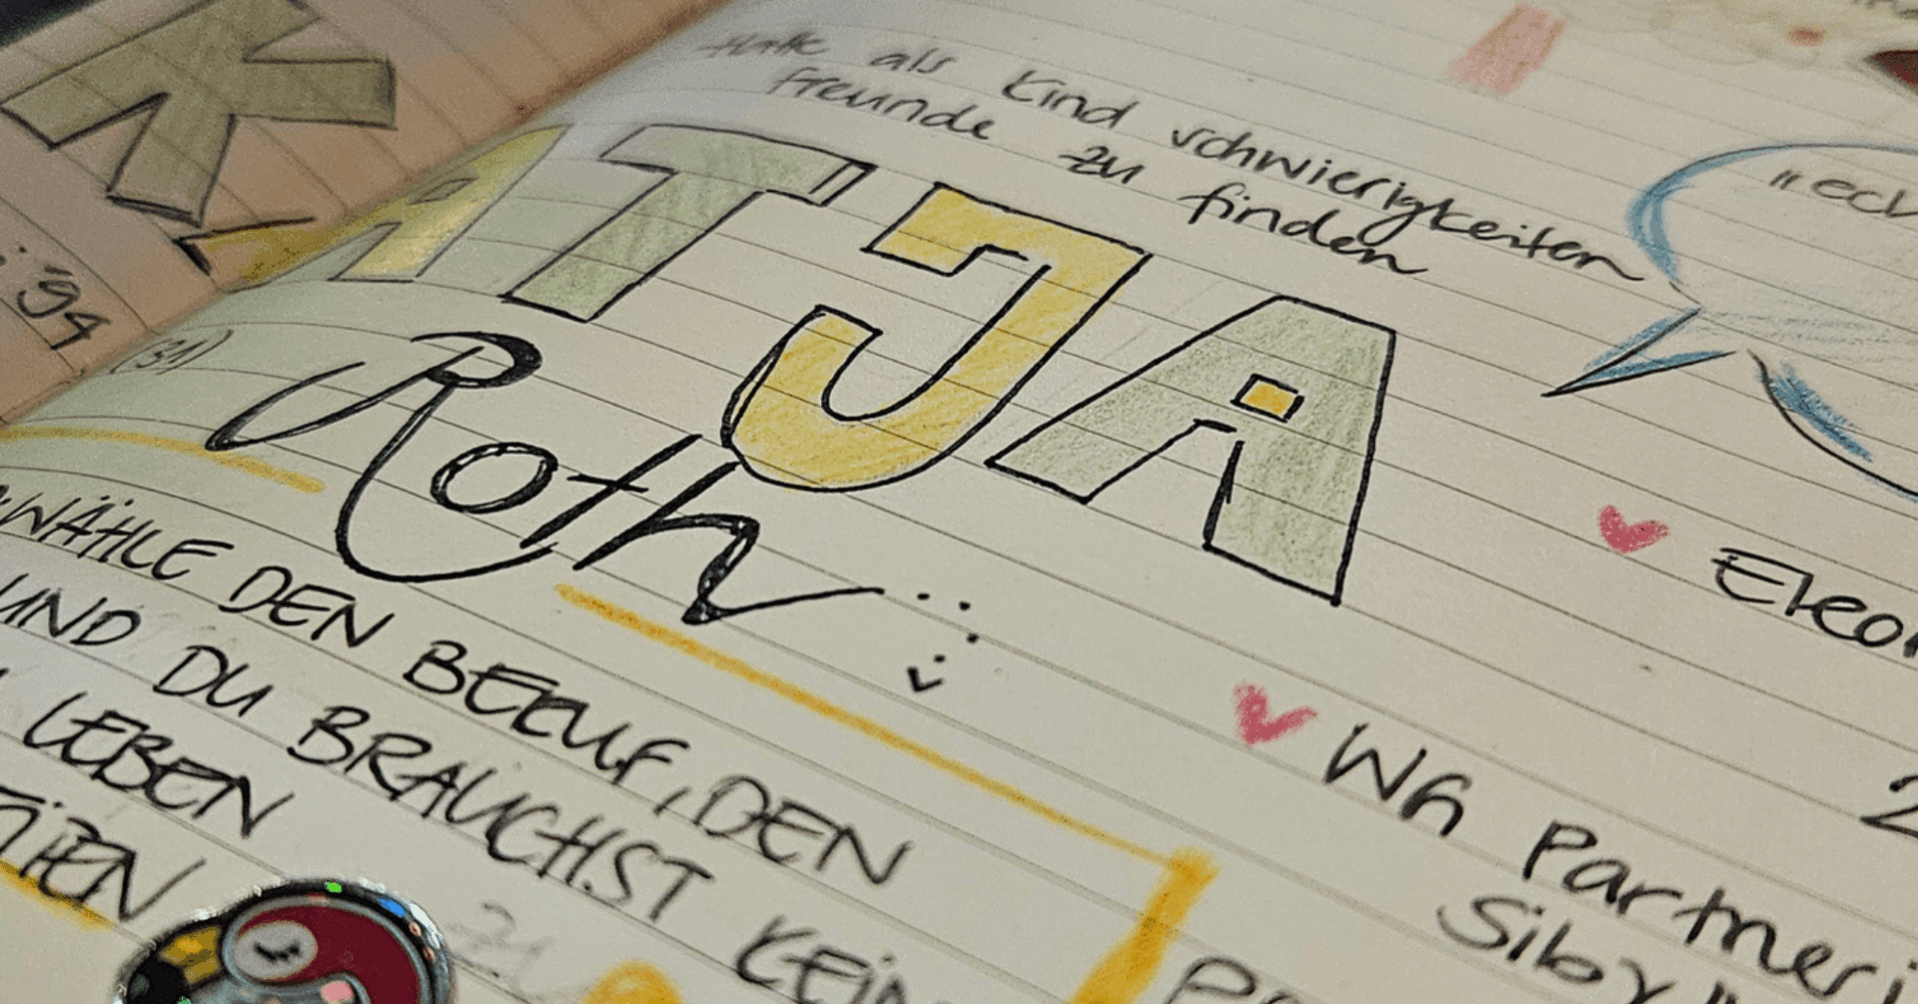 K
'94
Hatte als Kind schwierigkeiten
freunde zu finden
ATJA
(31)
Roth
WÄHLE DEN BERUF, DEN
UND DU BRAUCHST KEIN
LEBEN
♥ WG Partneri
Siby